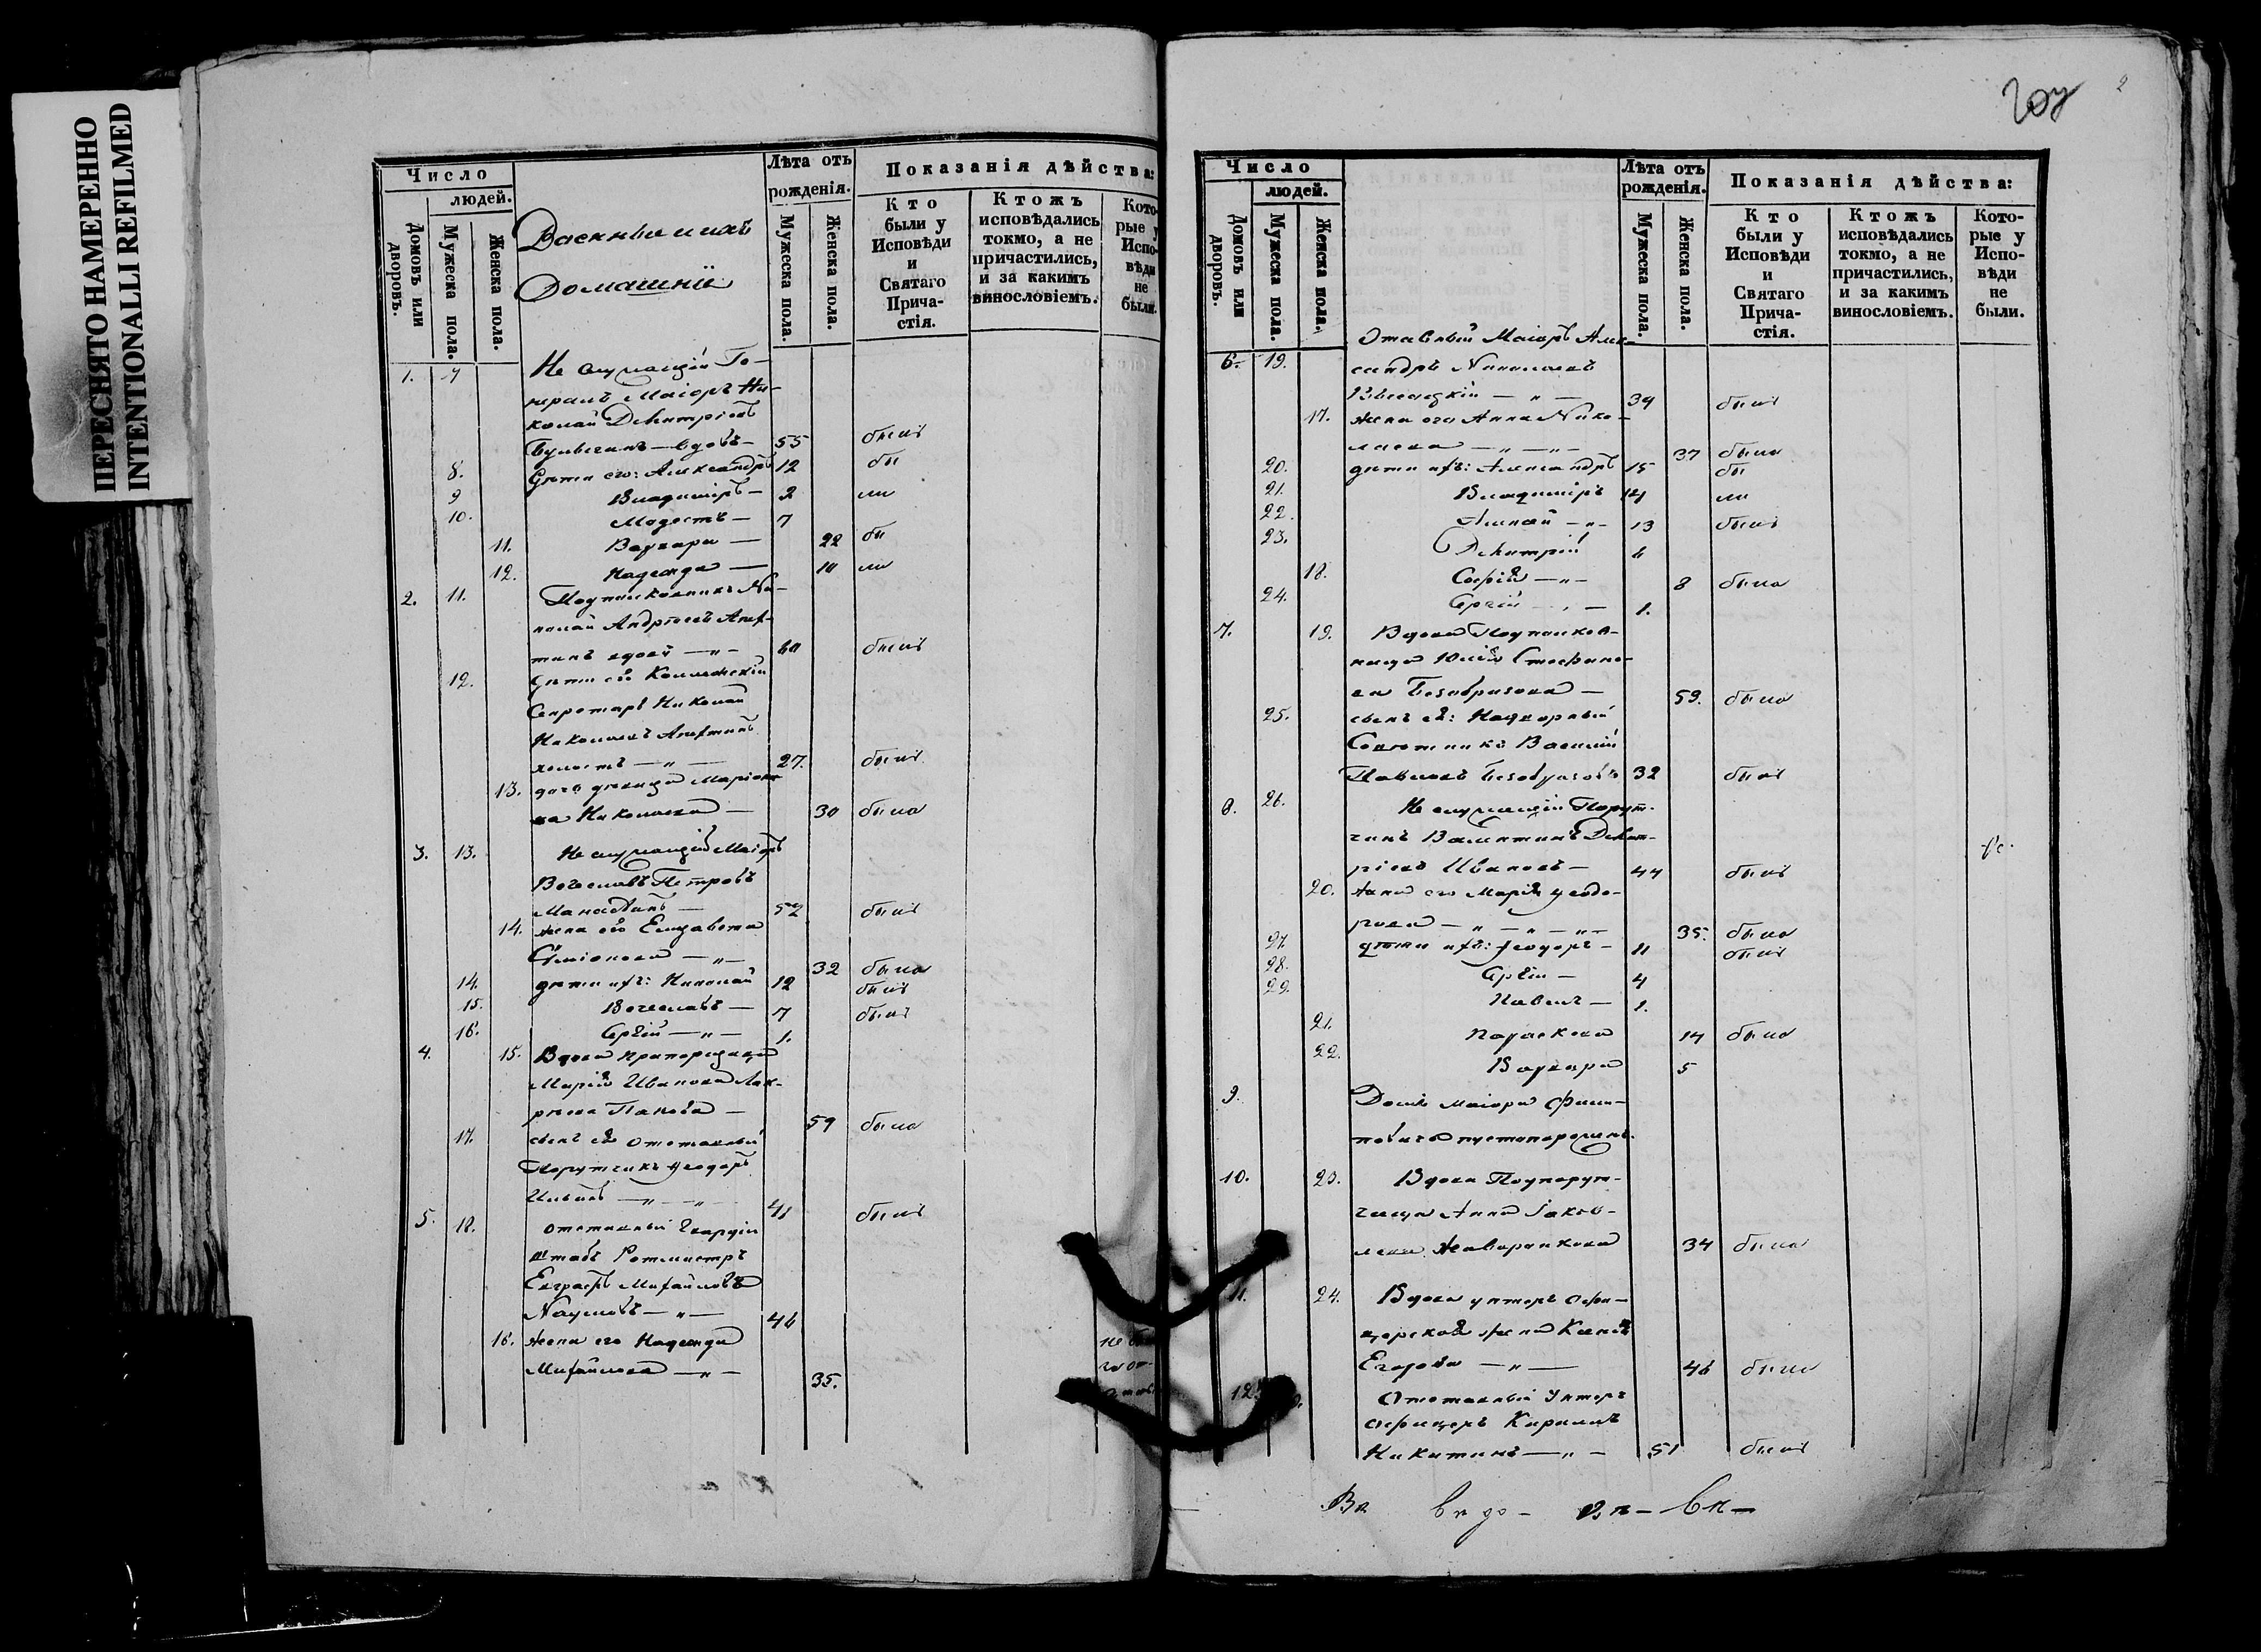 ПЕРЕСНЯТО НАМЕРЕННО
INTENTIONALLI REFILMED
Число
людей.
Домовъ или дворовъ.
Мужеска пола.
Женска пола.
Военные и ихъ
Домашніи
Лѣта отъ рожденія.
Мужеска пола.
Женска пола.
Показанія дѣйства:
Кто были у Исповѣди и Святаго Прича-стія.
Ктожъ исповѣдались токмо, а не причастились, и за какимъ винословіемъ.
Кото-рые у Испо-вѣди не были.
1. 7 Не служащій Ге-
нералъ Маіоръ Ни-
колай Димитріевъ
вдовъ 55 былъ
8. Дѣти его: Александръ 12 бы
9 Владиміръ 2 ли
10. Модестъ 7
11. Варвара 22 бы
12. Надежда 10 ли
2. 11. Подполковникъ Ни-
колай Андреевъ
вдовъ 60 былъ
12. Дѣти его Коллежскій
Секретарь Николай
Николаевъ
холостъ 27. былъ
13. дочь дѣвица Маріан-
на Николаева 30 была
3. 13. Не служащій Маіоръ
Вечеславъ Петровъ
52 былъ
14. жена его Елизавета
Симіонова 32 была
14. дѣти ихъ: Николай 12 былъ
15. Вечеславъ 7 былъ
16. Сергій 1.
4. 15. Вдова Прапорщица
Марія Иванова
59 была
17. сынъ ея отставный
Порутчикъ Ѳеодоръ
41 былъ
5. 18. отставный Гвардіи
штабъ Ротмистръ
Евграфъ Михайловъ
Наумовъ 46
16. жена его Надежда
Михайлова 35.
2
Число
людей.
Домовъ или дворовъ.
Мужеска пола.
Женска пола.
Лѣта отъ рожденія.
Мужеска пола.
Женска пола.
Показанія дѣйства:
Кто были у Исповѣди и Святаго Прича-стія.
Ктожъ исповѣдались токмо, а не причастились, и за какимъ винословіемъ.
Кото-рые у Испо-вѣди не были.
Отавный Маіоръ Алек-
6. 19. сандръ Николаевъ
39 былъ
17. жена его Анна Нико-
лаева 37 была
20. дѣти ихъ: Александръ 15 бы
21. Владиміръ 14 ли
22. Алексѣй 13 былъ
23. Димитрій 6
18. Софія 8 была
24. Сергій 1.
7. 19. Вдова Подполков-
ница Юлія Стефано-
ва Безобразова 59. была
25. сынъ ея: Надворный
Совѣтникъ Василій
Павловъ Безобразовъ 32 былъ
8. 26. Не служащій Порут-
чикъ Валентинъ Димит-
ріевъ Ивановъ 44 былъ
20. жена его Марія Ѳеодо-
рова 35. была
27. дѣти ихъ: Ѳеодоръ 11 былъ
28. Сергій 4
29. Павелъ 1.
21. Параскева 14 была
22. Варвара 5
9. Домъ маіора
пустопорожнъ.
10. 23. Вдова Подпорут-
чица Анна Іаков-
лева 34 была
11. 24. Вдова унтеръ офи-
церская жена
Егорова 46 была
12. Отставный Унтеръ
офицеръ Кирилъ
Никитинъ 51 былъ